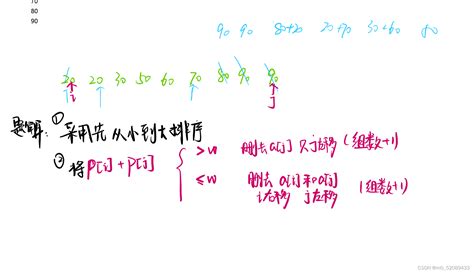 70
80
90
90 90 80+20 20+70 30+60 80
20 20 30 50 60 70 80 90 90
i j
题解: ① 采用先从小到大排序
② 将 p[i]+p[j]
>w 删去a[j] 只j左移 (组数+1)
≤w 删去 a[i]和a[j] (组数+1)
i右移 j左移
CSDN @m0_52089433